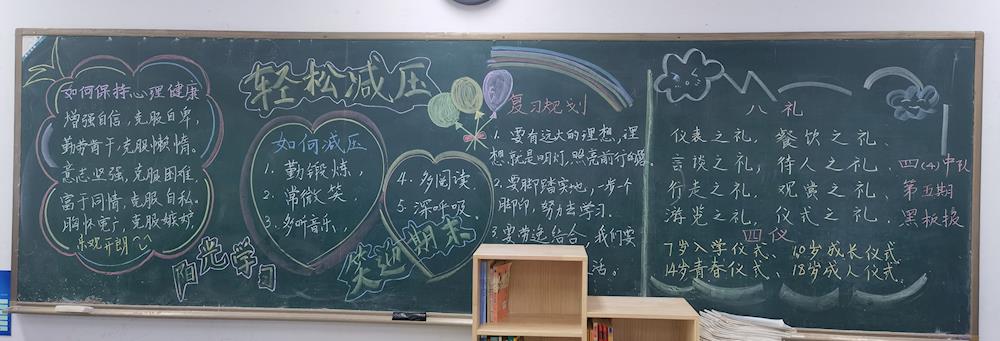 如何保持心理健康
增强自信，克服自卑，
勤劳肯干，克服懒惰。
意志坚强，克服困难，
富于同情，克服自私。
胸怀宽广，克服嫉妒，
乐观开朗
轻松减压
如何减压
1. 勤锻炼，
2. 常微笑，
3. 多听音乐，
4. 多阅读，
5. 深呼吸。
阳光学习
笑迎期末
复习规划
1. 要有远大的理想，理
想就是明灯，照亮前行的路。
2. 要脚踏实地，一步个
脚印，努力去学习。
3 要劳逸结合，我们要
活。
八礼
仪表之礼， 餐饮之礼
言谈之礼， 待人之礼，
行走之礼， 观赏之礼，
游览之礼， 仪式之礼，
四仪
7岁入学仪式、10岁成长仪式
14岁青春仪式、18岁成人仪式
四(4)中队
第五期
黑板报